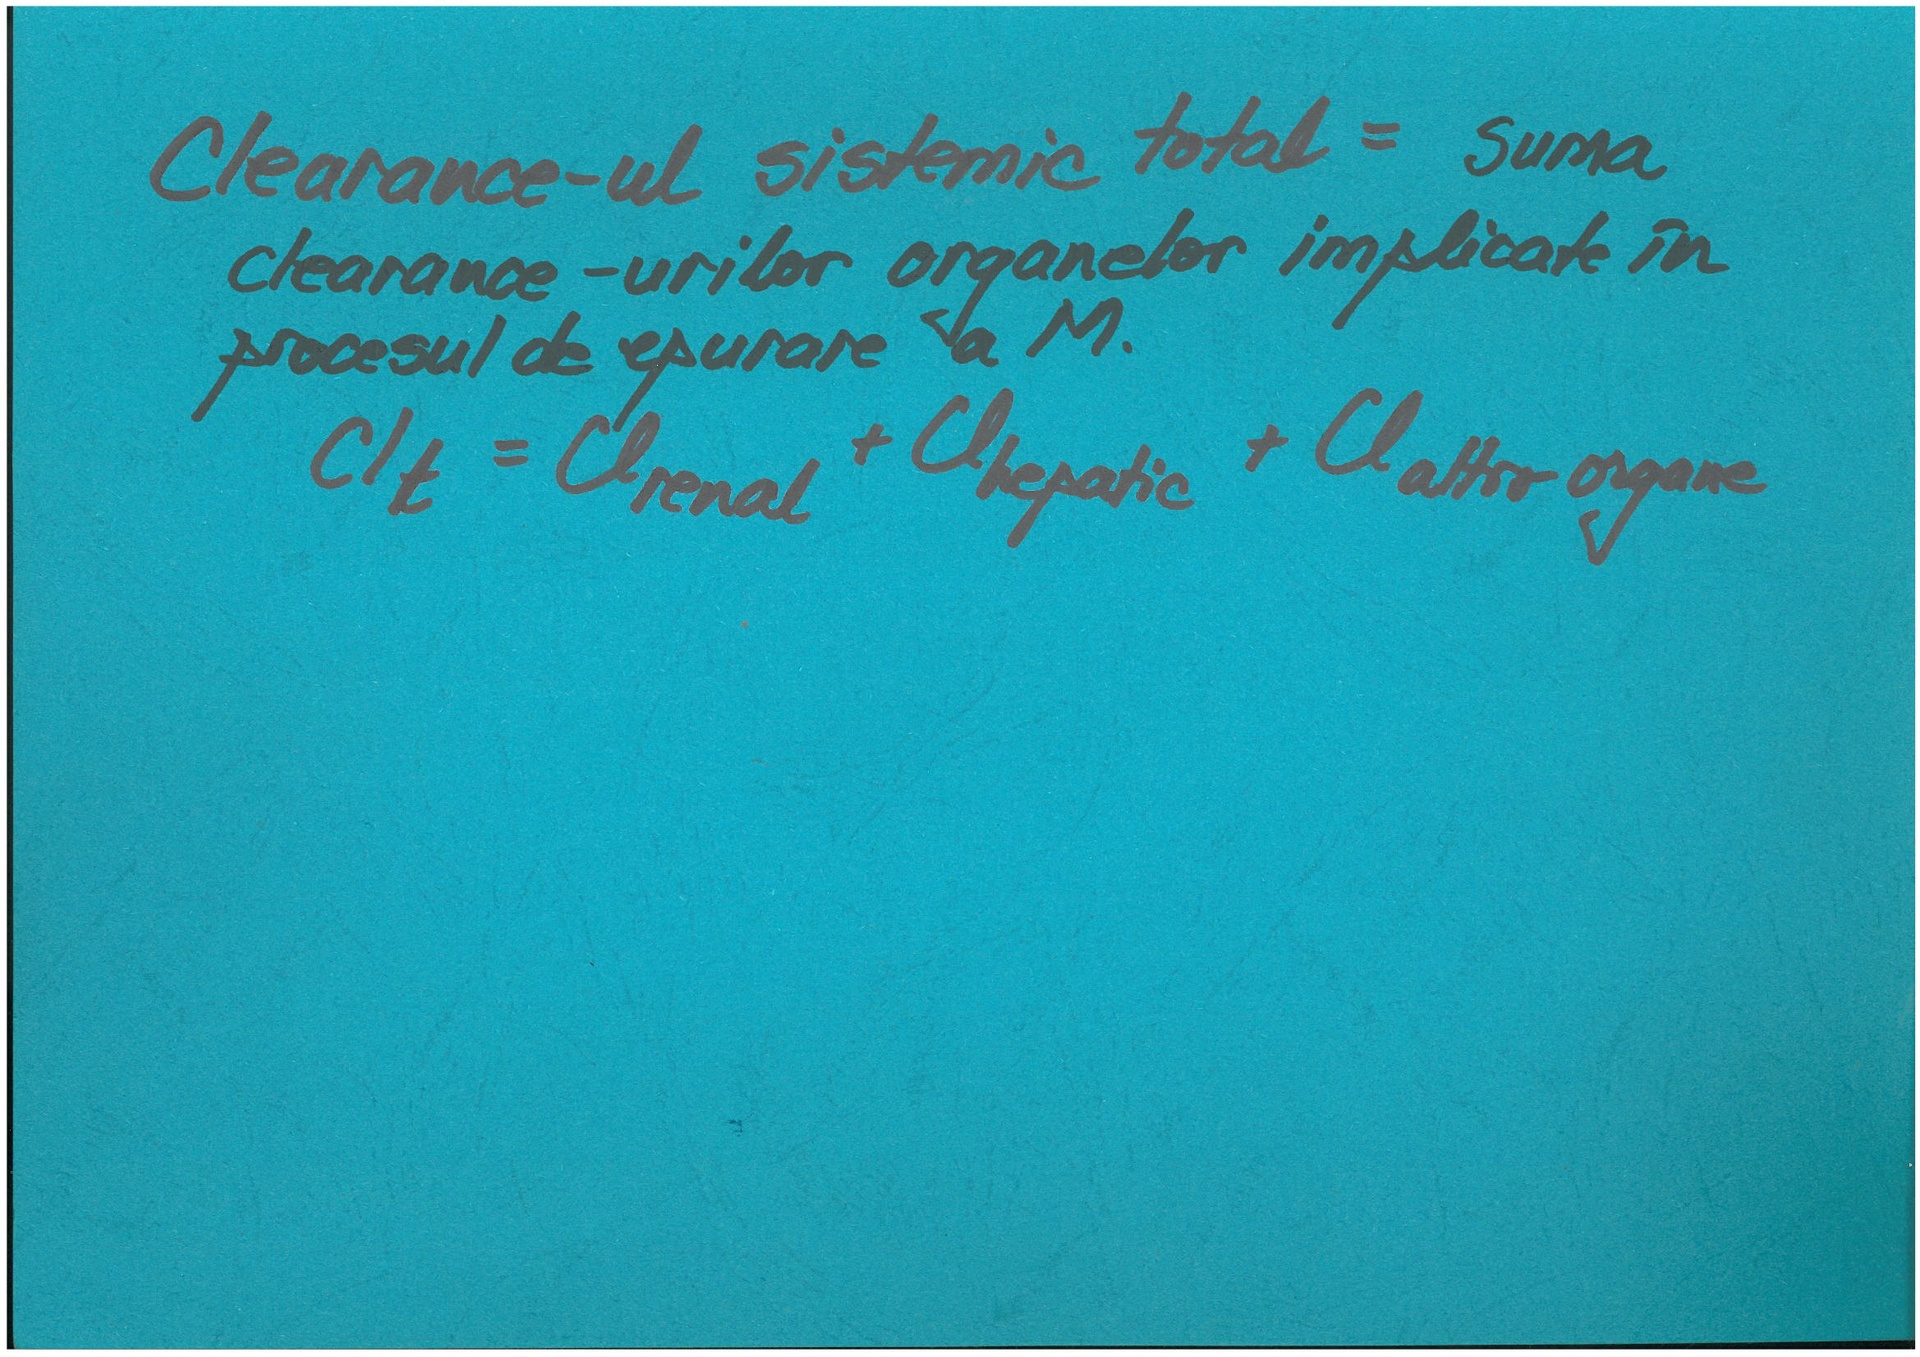 Clearance-ul sistemic total = suma
clearance-urilor organelor implicate în
procesul de epurare a M.
Clt = Clrenal + Clhepatic + Claltor organe